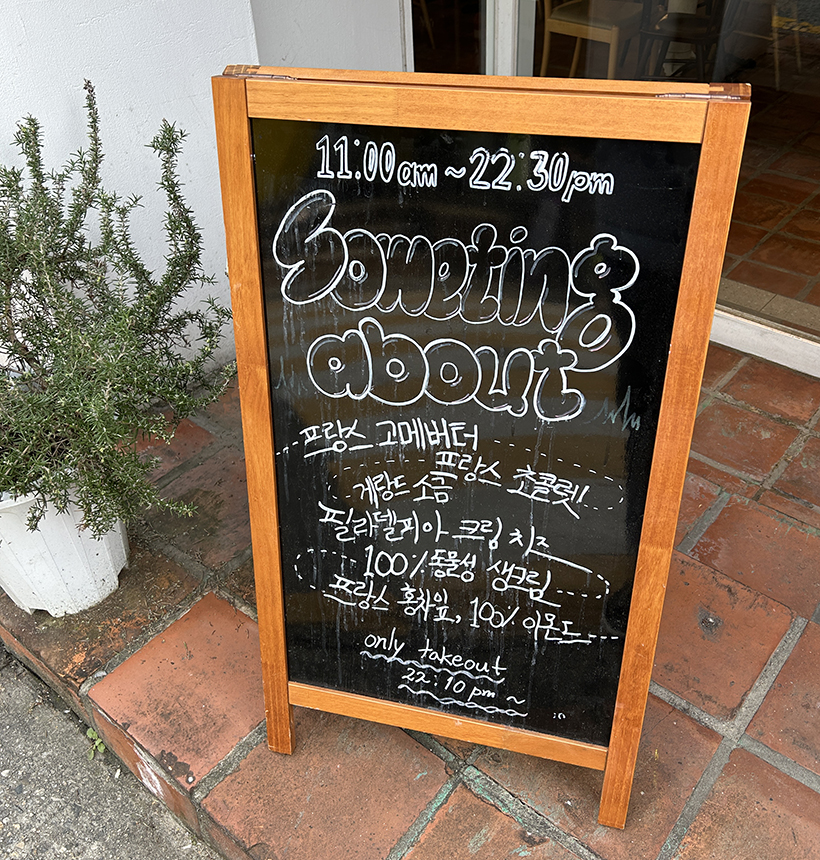 11:00am ~22:30pm
Someting
about
프랑스 고메버터
프랑스 초콜렛!
게랑드 소금
필라델피아 크림치즈
100%동물성 생크림
프랑스 홍차잎, 100% 아몬드
only takeout
22:10pm ~